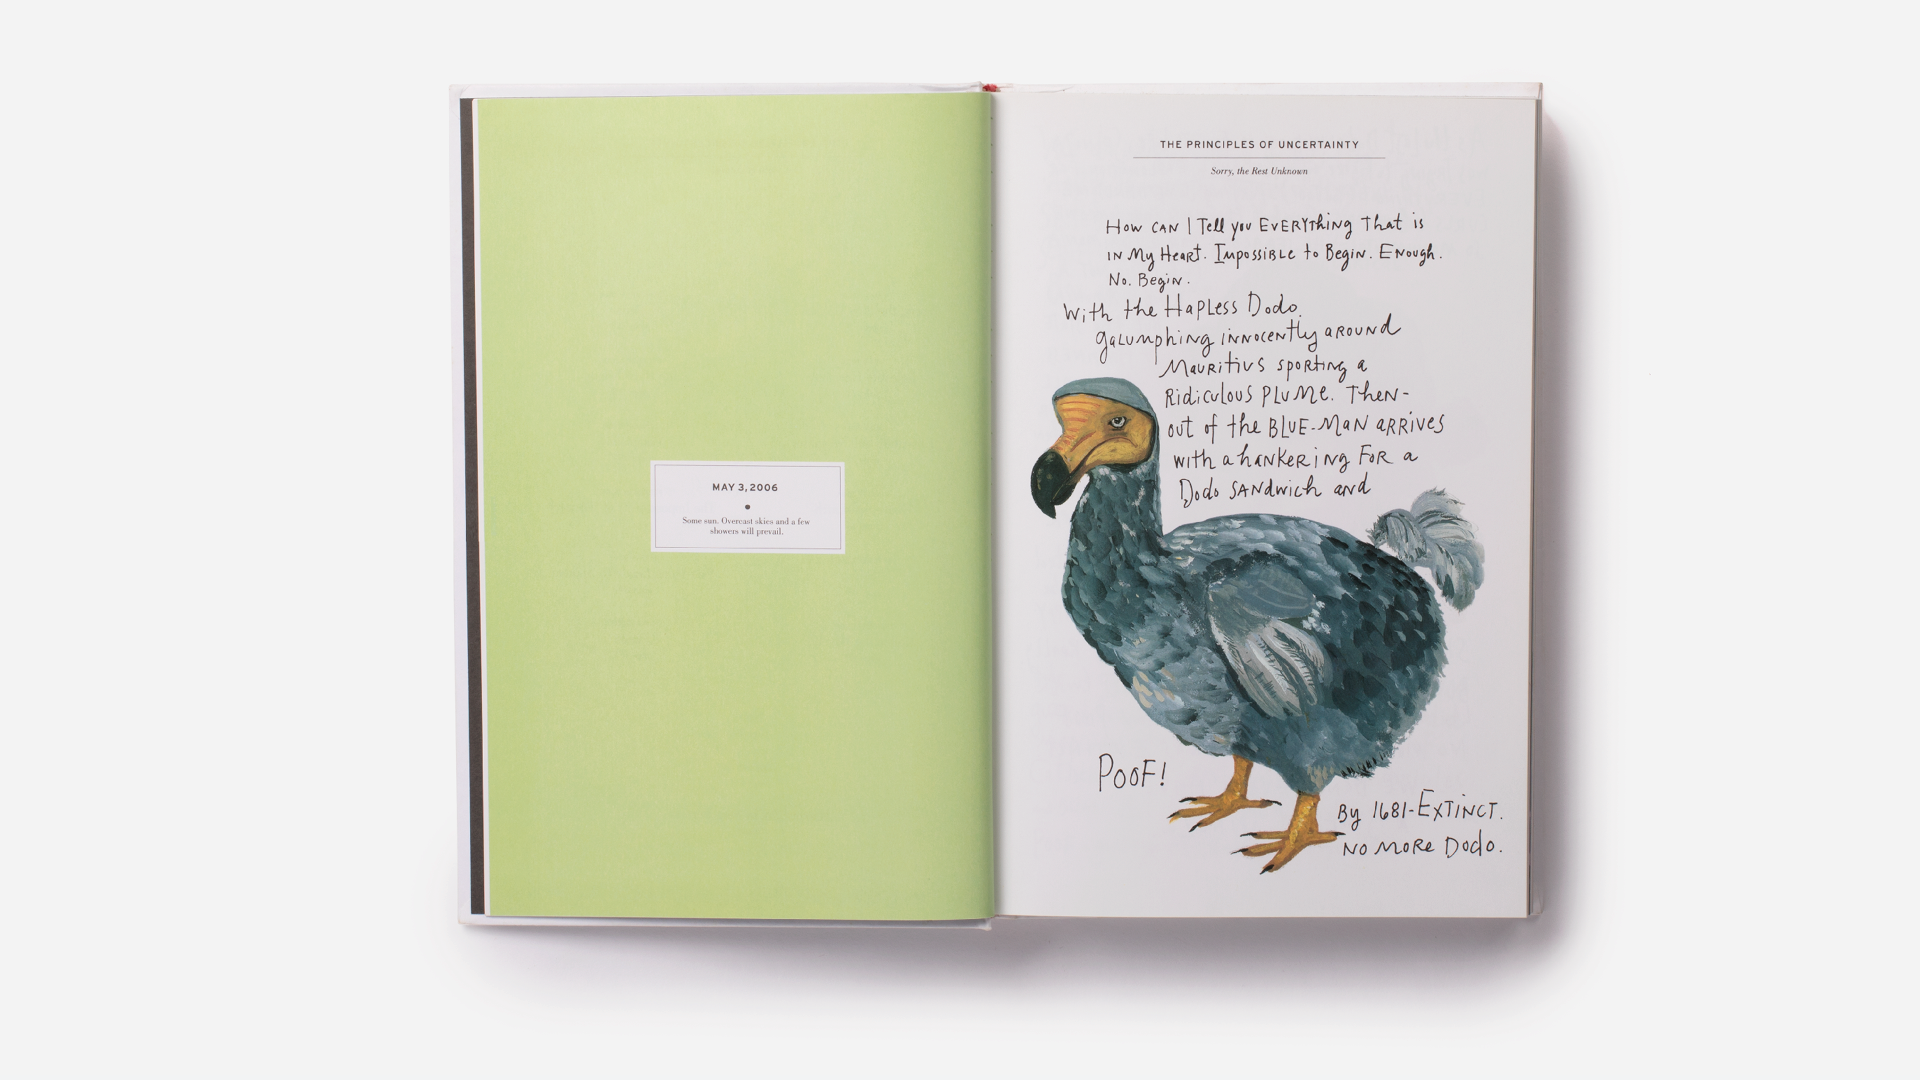 MAY 3, 2006
Some sun. Overcast skies and a few
showers will prevail.
THE PRINCIPLES OF UNCERTAINTY
Sorry, the Rest Unknown
How CAN I Tell you EVERYThing That is
IN My HeaRT. IMPOSSIBLE to Begin. ENough.
No. Begin.
With the HaPLess Dodo
galumphing innocently aROUND
Mauritius sporting a
Ridiculous PLUMe. Then-
out of the BLUE-MaN aRRives
with a hankering FOR a
Dodo SANdwich and
POOF!
By 1681-EXTINCT.
NO MORe Dodo.